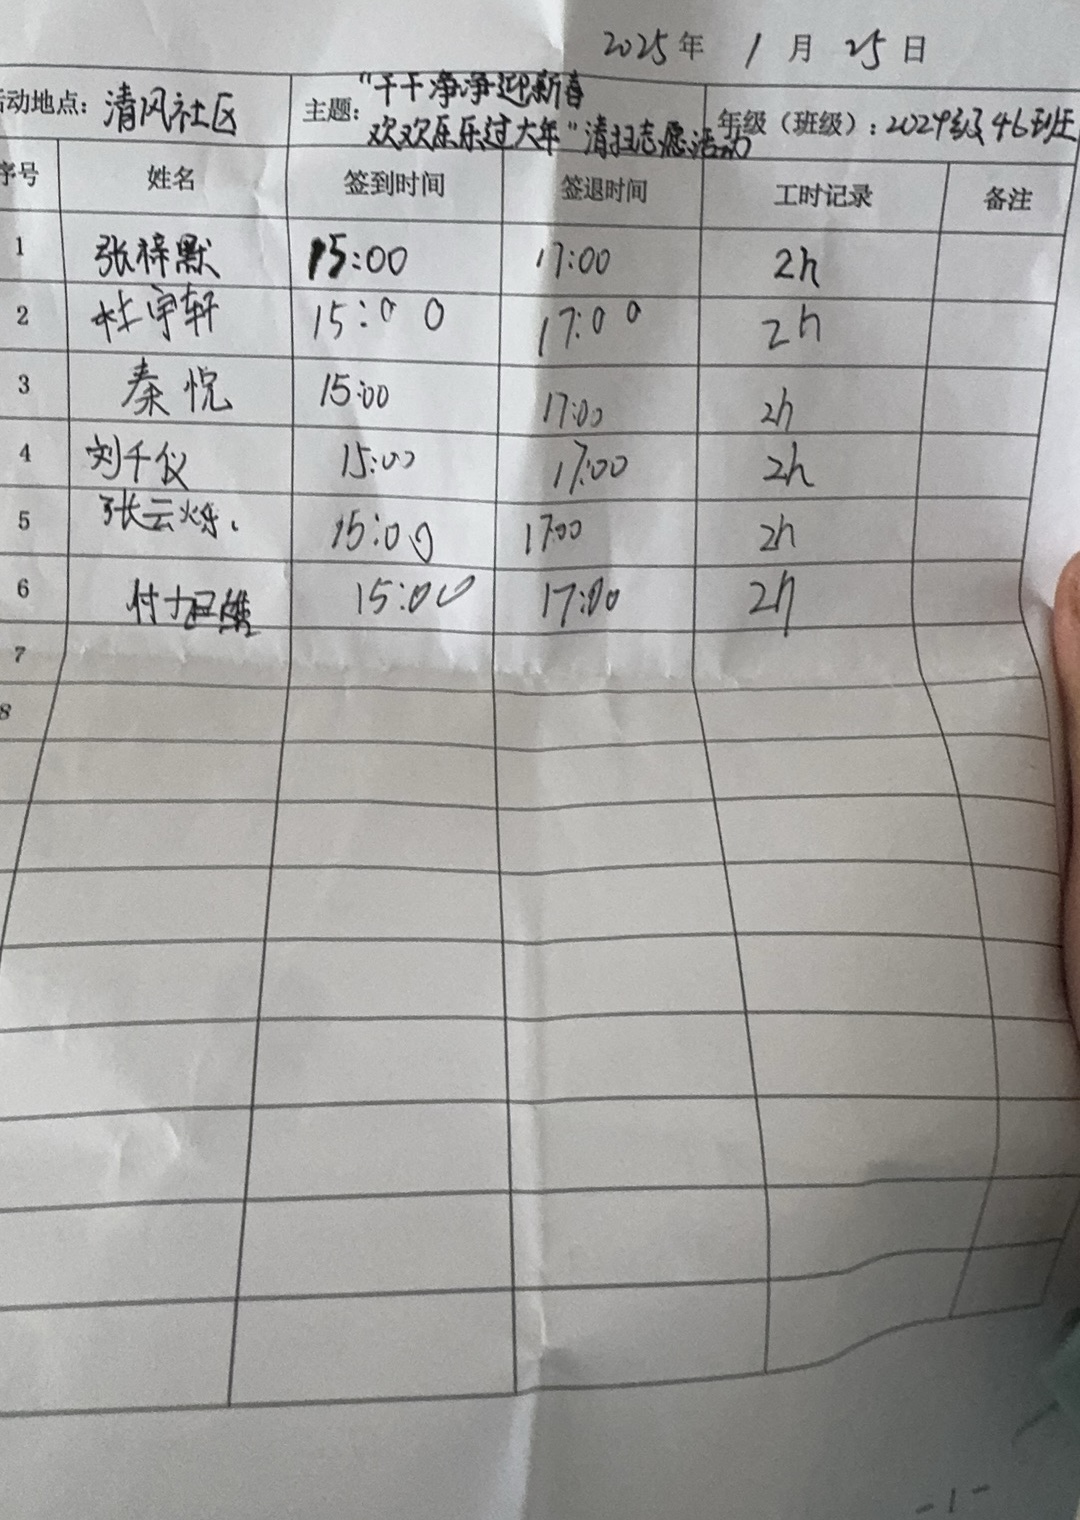 2025年 1月 25日
活动地点：清风社区 主题："干干净净迎新春 年级（班级）：2024级46班
欢欢乐乐过大年"清扫志愿活动
序号 姓名 签到时间 签退时间 工时记录 备注
1 张梓默 15:00 17:00 2h
2 杜宇轩 15:00 17:00 2h
3 秦悦 15:00 17:00 2h
4 刘千仪 15:00 17:00 2h
5 张云烁. 15:00 17:00 2h
6 付 15:00 17:00 2h
7
8
-1-